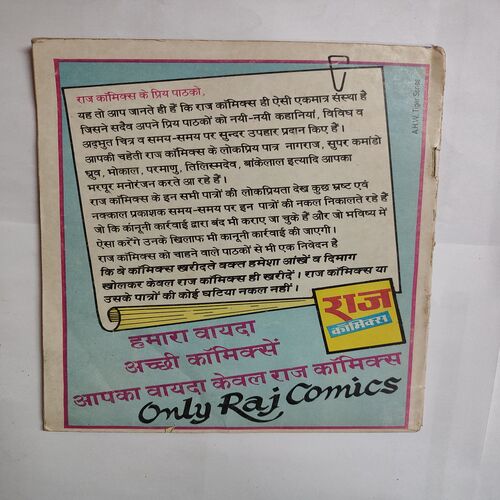 राज कॉमिक्स के प्रिय पाठको,
यह तो आप जानते ही हैं कि राज कॉमिक्स ही ऐसी एकमात्र संस्था है
जिसने सदैव अपने प्रिय पाठकों को नयी-नयी कहानियां, विविध व
अद्भुत चित्र व समय-समय पर सुन्दर उपहार प्रदान किए हैं।
आपकी चहेती राज कॉमिक्स के लोकप्रिय पात्र नागराज, सुपर कमांडो
ध्रुव, भोकाल, परमाणु, तिलिस्मदेव, बांकेलाल इत्यादि आपका
भरपूर मनोरंजन करते आ रहे हैं।
राज कॉमिक्स के इन सभी पात्रों की लोकप्रियता देख कुछ भ्रष्ट एवं
नक्काल प्रकाशक समय-समय पर इन पात्रों की नकल निकालते रहे हैं
जो कि कानूनी कार्रवाई द्वारा बंद भी कराए जा चुके हैं और जो भविष्य में
ऐसा करेंगे उनके खिलाफ भी कानूनी कार्रवाई की जाएगी।
राज कॉमिक्स को चाहने वाले पाठकों से भी एक निवेदन है
कि वे कॉमिक्स खरीदते वक्त हमेशा आंखें व दिमाग
खोलकर केवल राज कॉमिक्स ही खरीदें। राज कॉमिक्स या
उसके पात्रों की कोई घटिया नकल नहीं।
राज
कॉमिक्स
हमारा वायदा
अच्छी कॉमिक्सें
आपका वायदा केवल राज कॉमिक्स
Only Raj Comics